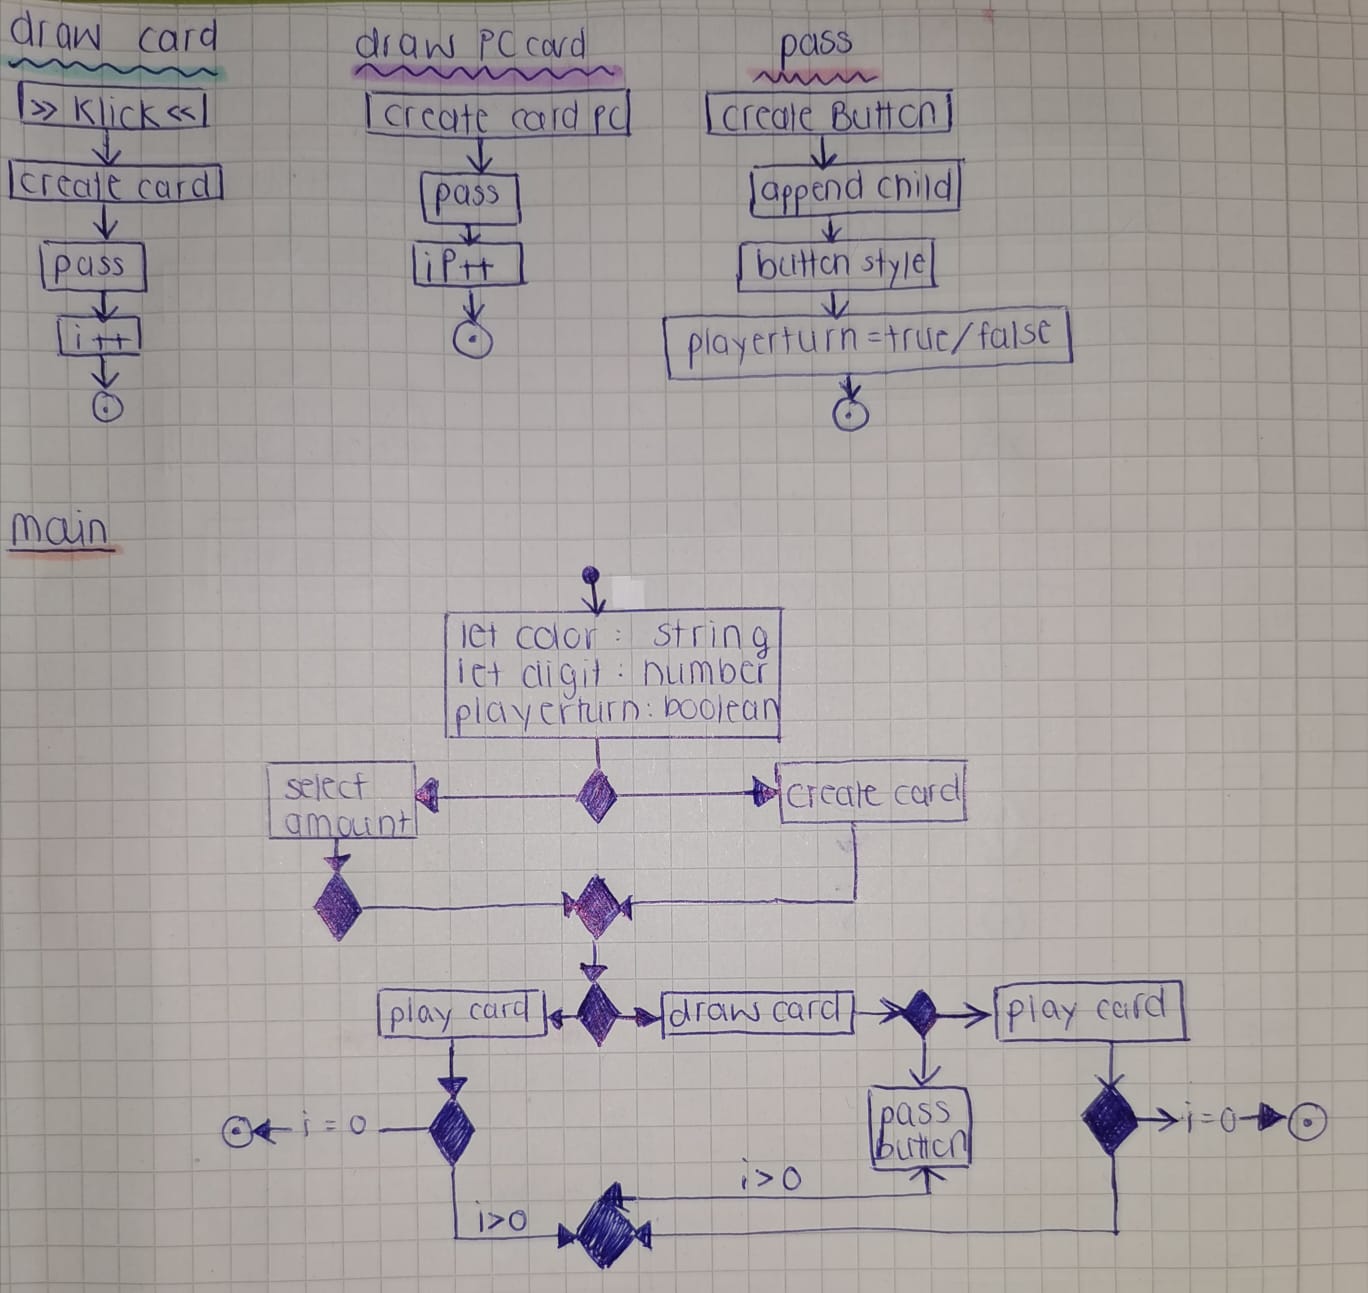 draw card
>> Klick <<
create card
pass
i++
draw PC card
create card PC
pass
iP++
pass
create Button
append child
button style
playerturn = true/false
main
let color: string
let digit: number
playerturn: boolean
select
amount
create card
play card
draw card
play card
i = 0
pass
button
i=0
i>0
i>0